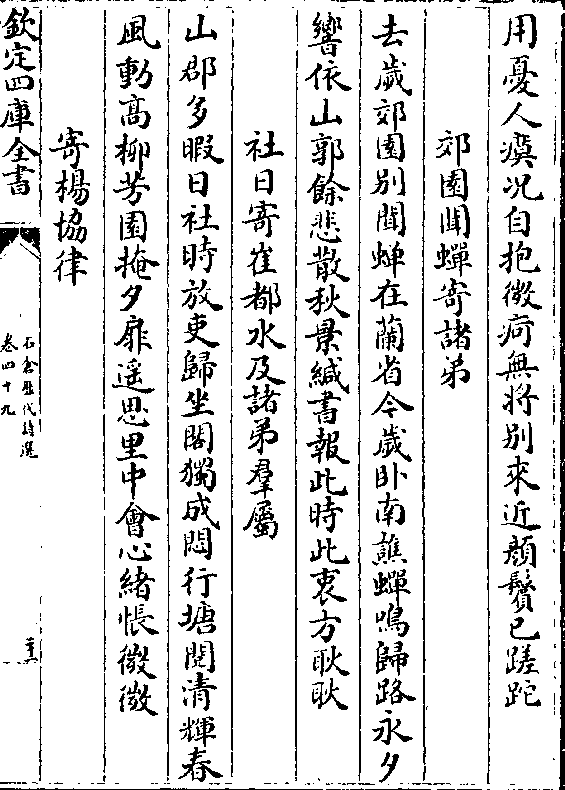 用憂人瘼况自抱微痾無將别來近顔鬢已蹉跎
郊園聞蟬寄諸弟
去歲郊園别聞蟬在蘭省今歲卧南譙蟬鳴歸路永夕
響依山郭餘悲散秋景緘書報此時此衷方耿耿
社日寄崔都水及諸弟羣屬
山郡多暇日社時放吏歸坐閣獨成悶行塘閲清輝春
風動高柳芳園掩夕扉遥思里中會心緒悵微微
寄楊協律
欽定四庫全書
石倉歷代詩選
卷四十九